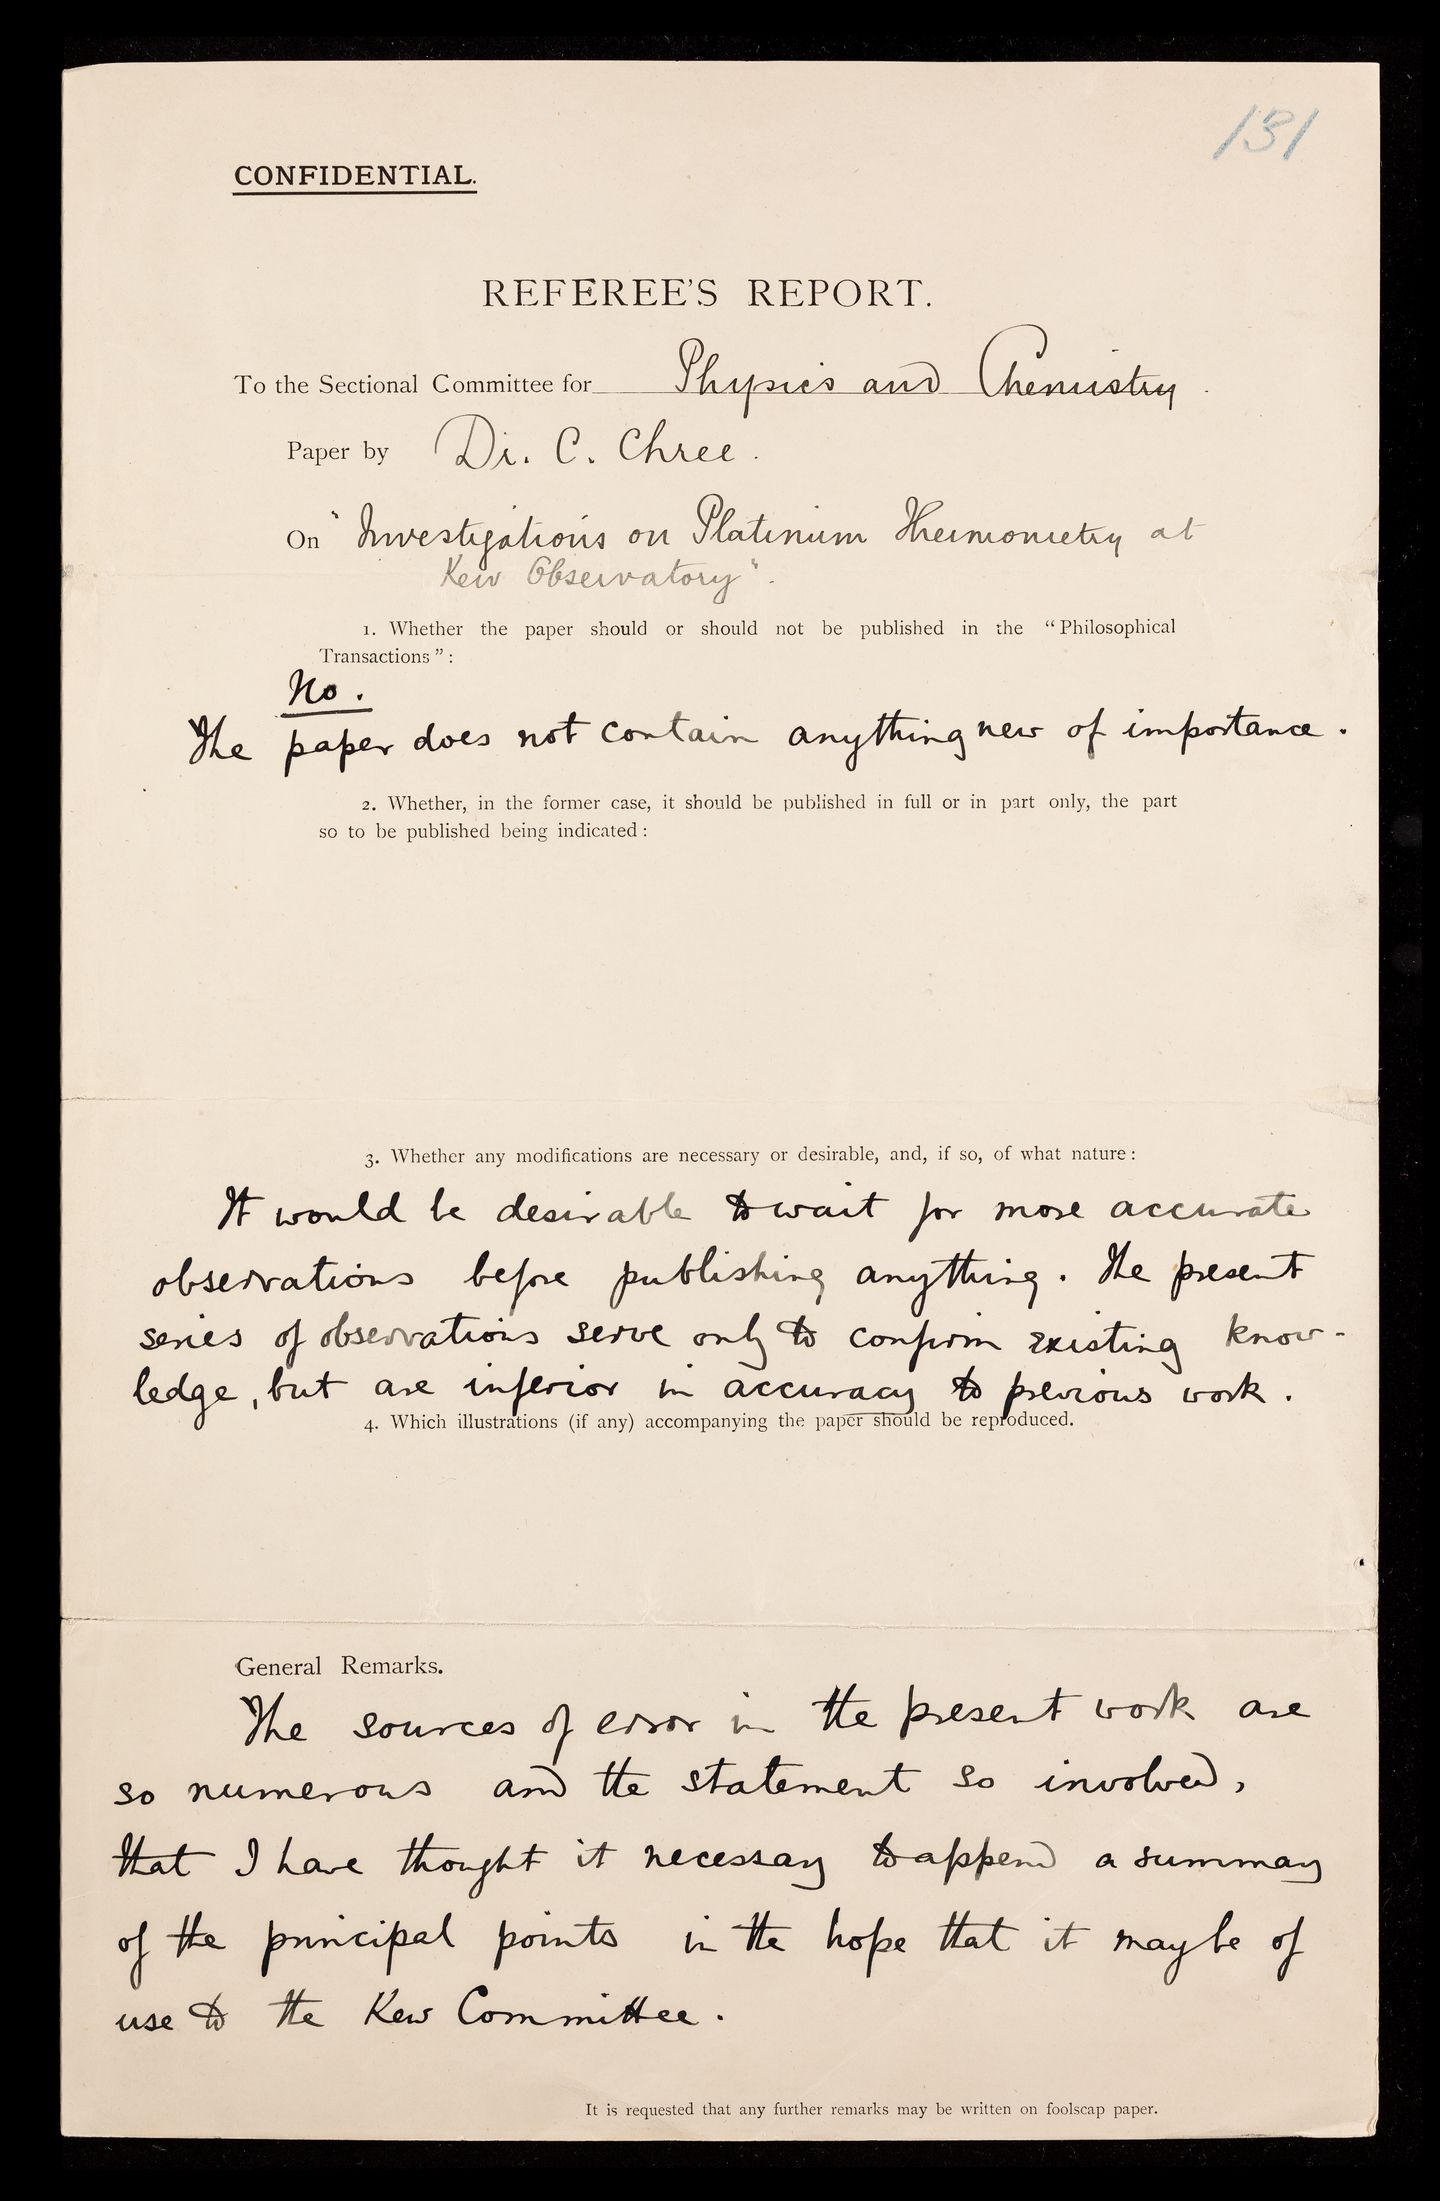 131
CONFIDENTIAL.
REFEREE'S REPORT.
To the Sectional Committee for Physics and Chemistry.
Paper by Dr. C. Chree.
On "Investigations on Platinum Thermometry at
Kew Observatory".
1. Whether the paper should or should not be published in the "Philosophical
Transactions":
No.
The paper does not contain anything new of importance.
2. Whether, in the former case, it should be published in full or in part only, the part
so to be published being indicated:
3. Whether any modifications are necessary or desirable, and, if so, of what nature:
It would be desirable to wait for more accurate
observations before publishing anything. The present
series of observations serve only to confirm existing know-
ledge, but are inferior in accuracy to previous work.
4. Which illustrations (if any) accompanying the paper should be reproduced.
General Remarks.
The sources of error in the present work are
so numerous and the statement so involved,
that I have thought it necessary to append a summary
of the principal points in the hope that it may be of
use to the Kew Committee.
It is requested that any further remarks may be written on foolscap paper.